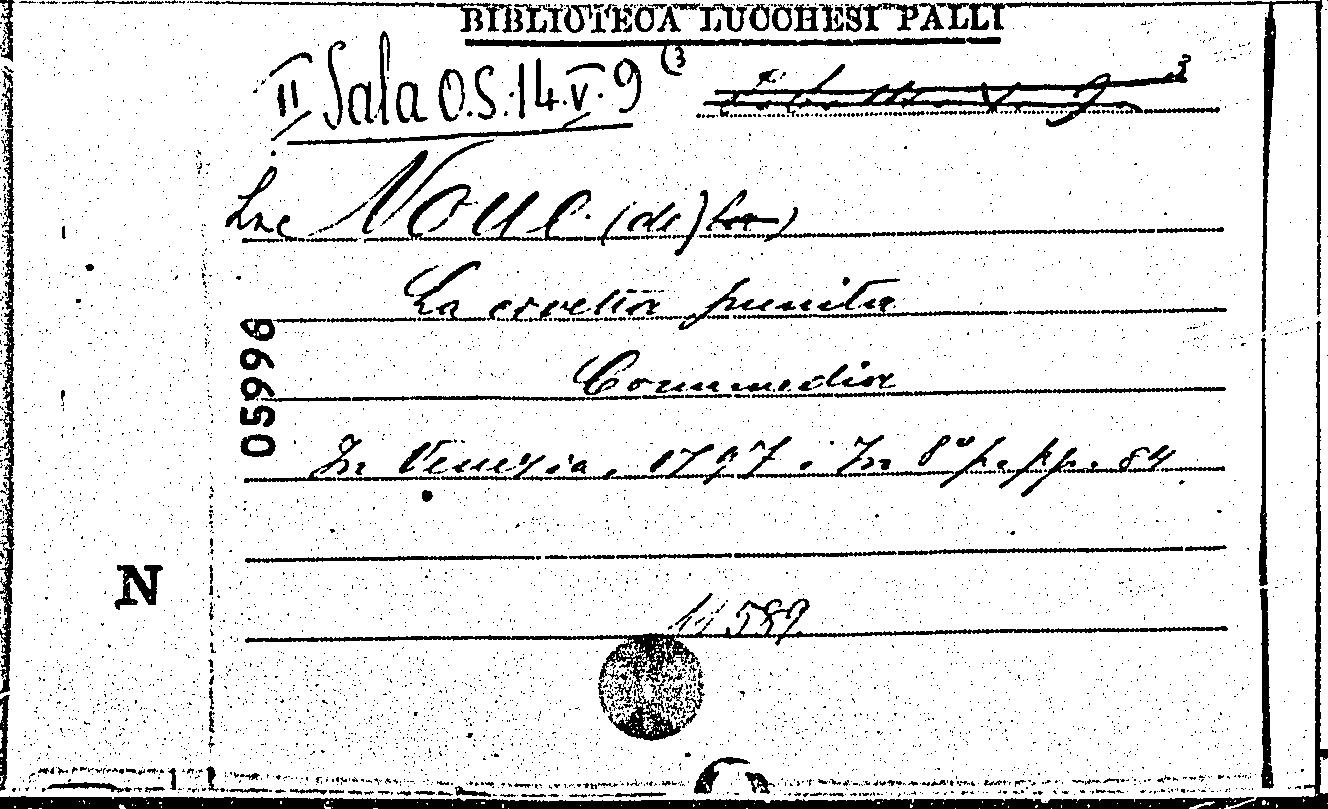 BIBLIOTECA LUCCHESI PALLI
II Sala O.S. 14. V. 9 (3
La Noue (de) La)
La civetta punita
Commedia
05996
In Venezia, 1797. In 8° p. pp. 54
N
11589